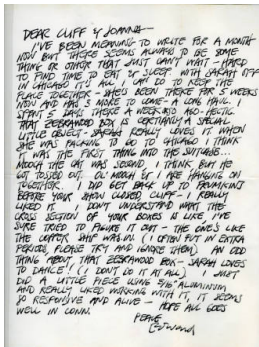 DEAR CLIFF & JOANNA—
I'VE BEEN MEANING TO WRITE FOR A MONTH
NOW BUT THERE SEEMS ALWAYS TO BE SOME
THING OR OTHER THAT JUST CAN'T WAIT - HARD
TO FIND TIME TO EAT & SLEEP. WITH SARAH OFF
IN CHICAGO IT'S ALL I CAN DO TO KEEP THE
PLACE TOGETHER - SHE'S BEEN THERE FOR 5 WEEKS
NOW AND HAS 3 MORE TO COME - A LONG HAUL. I
SPENT 5 DAYS THERE A WEEK AGO - HECTIC.
THAT ZEBRAWOOD BOX IS CERTAINLY A SPECIAL
LITTLE OBJECT - SARAH REALLY LOVES IT. WHEN
SHE WAS PACKING TO GO TO CHICAGO I THINK
IT WAS THE FIRST THING INTO THE SUITCASE...
MOOCH THE CAT WAS 2ND I THINK BUT HE
GOT TOSSED OUT. OL' MOOCH & I ARE HANGING ON
TOGETHER. I DID GET BACK UP TO FRUMKINS
BEFORE YOUR SHOW CLOSED CLIFF - I REALLY
LIKED IT. I DON'T UNDERSTAND WHAT THE
CROSS SECTION OF YOUR BOXES IS LIKE, I'VE
SURE TRIED TO FIGURE IT OUT - THE ONE'S LIKE
THE COPPER SHIP WAS IN. (I OFTEN PUT IN EXTRA
PERIODS, PLEASE TRY AND IGNORE THEM) AN ODD
THING ABOUT THAT ZEBRAWOOD BOX - SARAH LOVES
TO DANCE! (I DON'T DO IT AT ALL) I JUST
DID A LITTLE PIECE USING 5/16" ALUMINUM
AND REALLY LIKED WORKING WITH IT, IT SEEMS
SO RESPONSIVE AND ALIVE - HOPE ALL GOES
WELL IN CONN.
PEACE,